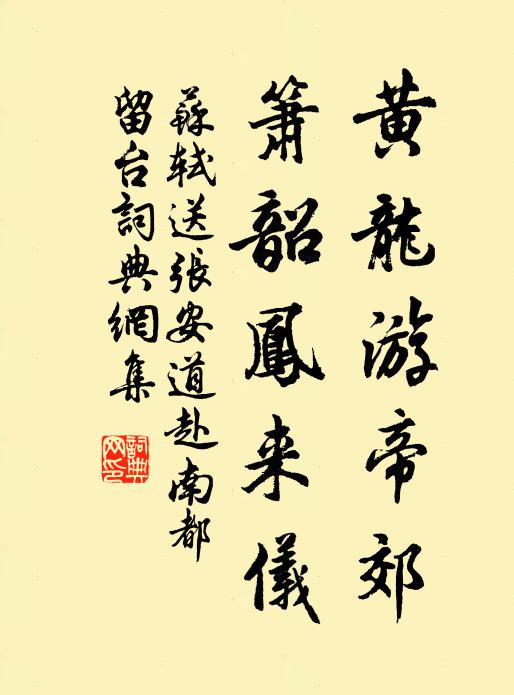 黄龍游帝郊
簫韶鳳来儀
蘇軾送張安道赴南都
留台詞典網集
詞典网印